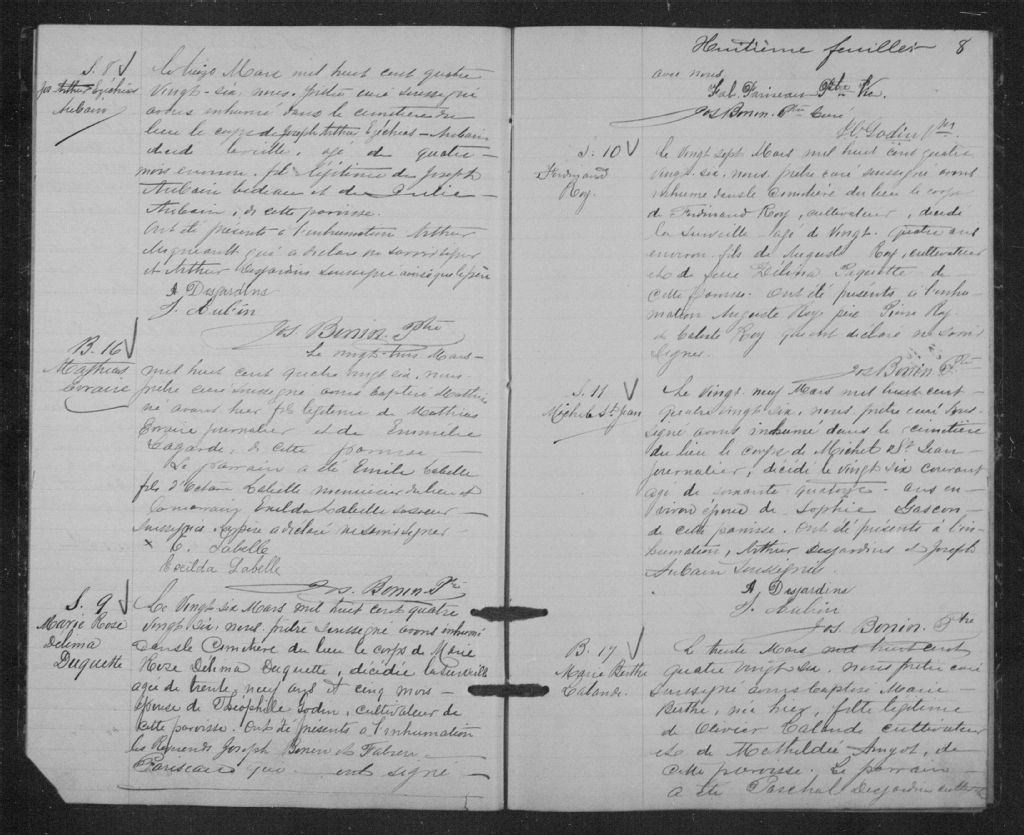 S. 8
Jos Arthur Ezéchias
Aubain
Le vingt Mars mil huit cent quatre
Vingt-six, nous, prêtre curé soussigné
avons inhumé dans le cimetière du
lieu le corps de Joseph Arthur Ezéchias Aubain
décédé la veille, agé de quatre
mois environ, fils légitime de Joseph
Aubain bedeau et de Julie
Aubain, de cette paroisse.
Ont été présents à l'inhumation Arthur
Migneault qui a déclaré ne savoir signer
et Arthur Desjardins soussigné ainsi que le père
A Desjardins
J. Aubin
Jos. Bonin Ptre
B. 16
Mathias
Ervaire
Le vingt-trois Mars
mil huit cent quatre vingt six, nous
prêtre curé soussigné avons baptisé Mathias
né avant hier fils légitime de Mathias
Ervaire journalier et de Emmélie
Lagarde, de cette paroisse
Le parrain a été Emile Labelle
fils d'Octave Labelle menuisier du lieu et
la marraine Exilda Labelle sa soeur
soussignés. Le père a déclaré ne savoir signer
× E. Labelle
Exilda Labelle
Jos. Bonin Ptre
S. 9
Marie Rose
Délima
Duquette
Le Vingt six Mars mil huit cent quatre
vingt six, nous, prêtre soussigné avons inhumé
dans le Cimetière du lieu le corps de Marie
Rose Délima Duquette, décédée la surveille
agée de trente neuf ans et cinq mois
épouse de Théophile Godin, cultivateur de
cette paroisse. Ont été présents à l'inhumation
les Révérends Joseph Bonin et Fabien
Pariseau qui ont signé
Huitième feuillet 8
avec nous.
Fab. Parineau Ptre Vic.
Jos Bonin Ptre Curé
Godin
S. 10
Ferdinand
Roy.
Le Vingt sept Mars mil huit cent quatre
vingt six, nous, prêtre curé soussigné avons
inhumé dans le Cimetière du lieu le corps
de Ferdinand Roy, cultivateur, décédé
la surveille agé de vingt-quatre ans
environ fils de Auguste Roy, cultivateur
et de feue Zélina Paquette de
cette paroisse. Ont été présents à l'inhu-
mation Auguste Roy père Pierre Roy
et Calixte Roy qui ont déclaré ne savoir
signer.
Jos Bonin. Ptre
S. 11
Michel St Jean
Le Vingt neuf Mars mil huit cent
quatre vingt six, nous, prêtre curé sous-
signé avons inhumé dans le cimetière
du lieu le corps de Michel St Jean
journalier, décédé le vingt six courant
agé de soixante quatorze ans en-
viron époux de Sophie Gascon
de cette paroisse. Ont été présents à l'in-
humation, Arthur Desjardins et Joseph
Aubain soussignés.
A Desjardins
J. Aubin
Jos. Bonin. Ptre
B. 17
Marie Berthe
Lalande.
Le trente Mars mil huit cent
quatre vingt six, nous prêtre curé
soussigné avons baptisé Marie
Berthe, née hier, fille légitime
de Olivier Lalande cultivateur
et de Mathildée Angot, de
cette paroisse. Le parrain
a été Paschal Desjardins cultiv